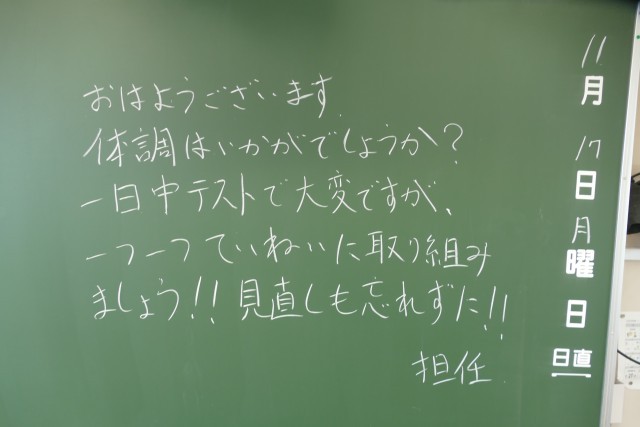 おはようございます。
体調はいかがでしょうか？
一日中テストで大変ですが、
一つ一つていねいに取り組み
ましょう!! 見直しも忘れずに!!
担任
11月17日月曜日
日直